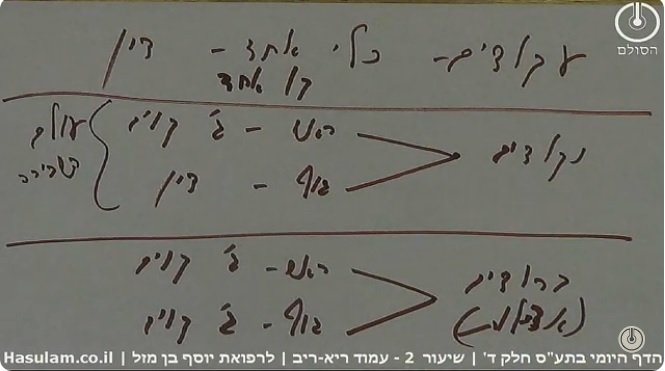 הסולם
עקודים - כלי אחד - דין
קו אחד
נקודים ראש - ג' קוים
גוף - דין
עולם השבירה
ברודים ראש - ג' קוים
(אצילות) גוף - ג' קוים
הדף היומי בתע"ס חלק ד' | שיעור 2 - עמוד ריא-ריב | לרפואת יוסף בן מזל | Hasulam.co.il